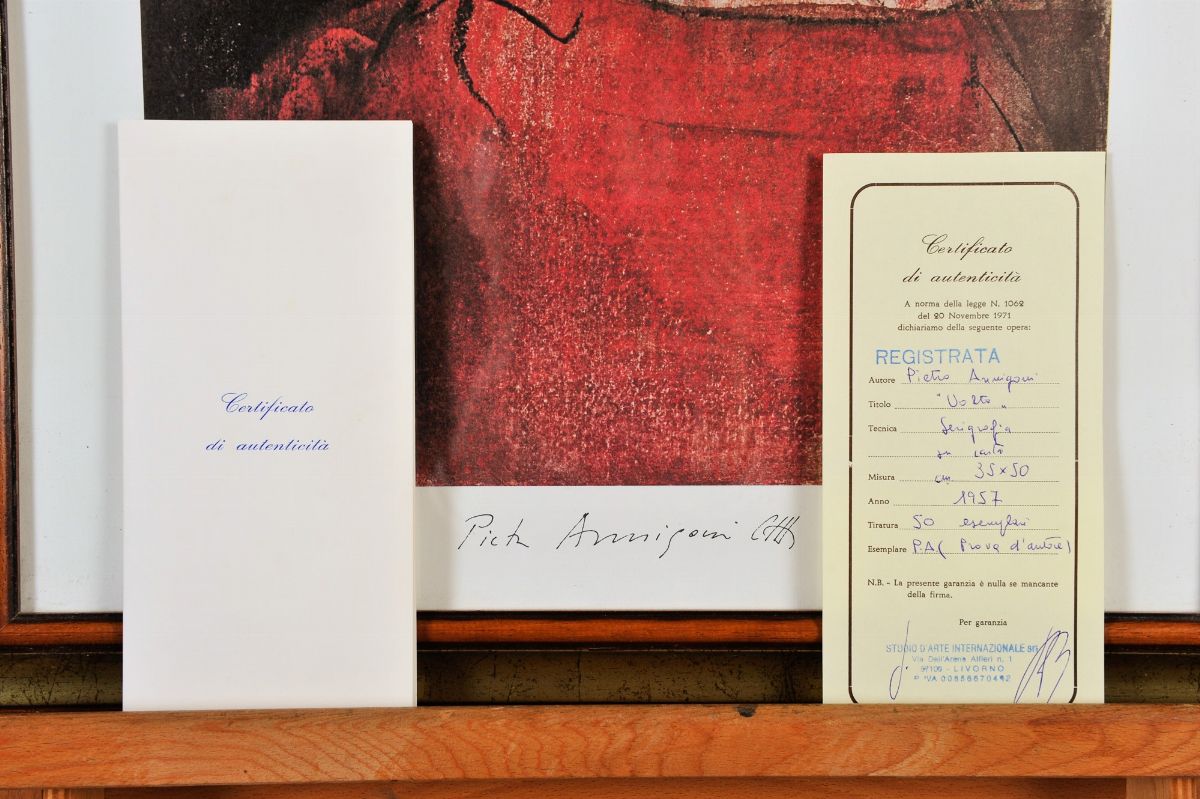 Certificato
di autenticità
Pietro Annigoni
Certificato
di autenticità
A norma della legge N. 1062
del 20 Novembre 1971
dichiariamo della seguente opera:
REGISTRATA
Autore Pietro Annigoni
Titolo "Volto"
Tecnica Serigrafia
su carta
Misura cm 35x50
Anno 1957
Tiratura 50 esemplari
Esemplare P.A. (Prova d'autore)
N.B. - La presente garanzia è nulla se mancante
della firma.
Per garanzia
STUDIO D'ARTE INTERNAZIONALE srl
Via Dell'Arena Alfieri n. 1
57100 - LIVORNO
P. IVA